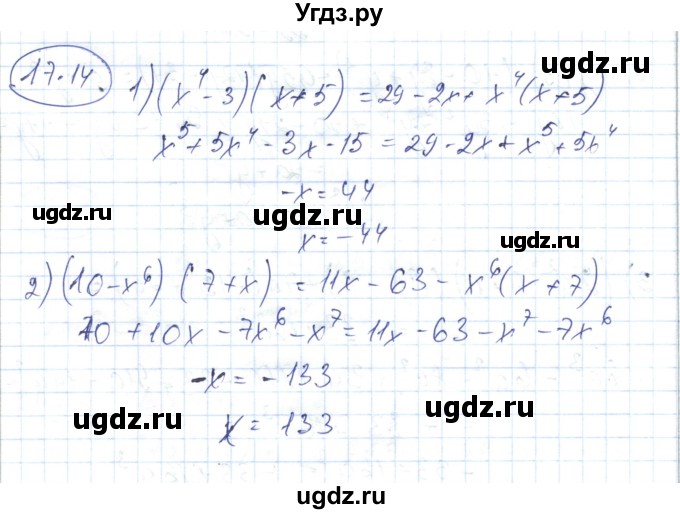 Угдз.ру
17.14.
1) (x⁴ - 3)(x + 5) = 29 - 2x + x⁴(x + 5)
x⁵ + 5x⁴ - 3x - 15 = 29 - 2x + x⁵ + 5x⁴
-x = 44
ugdz.ru ugdz.ru
x = -44
ugdz.ru
2) (10 - x⁶) (7 + x) = 11x - 63 - x⁶(x + 7)
70 + 10x - 7x⁶ - x⁷ = 11x - 63 - x⁷ - 7x⁶
-x = -133
ugdz.ru ugdz.ru
x = 133
ugdz.ru